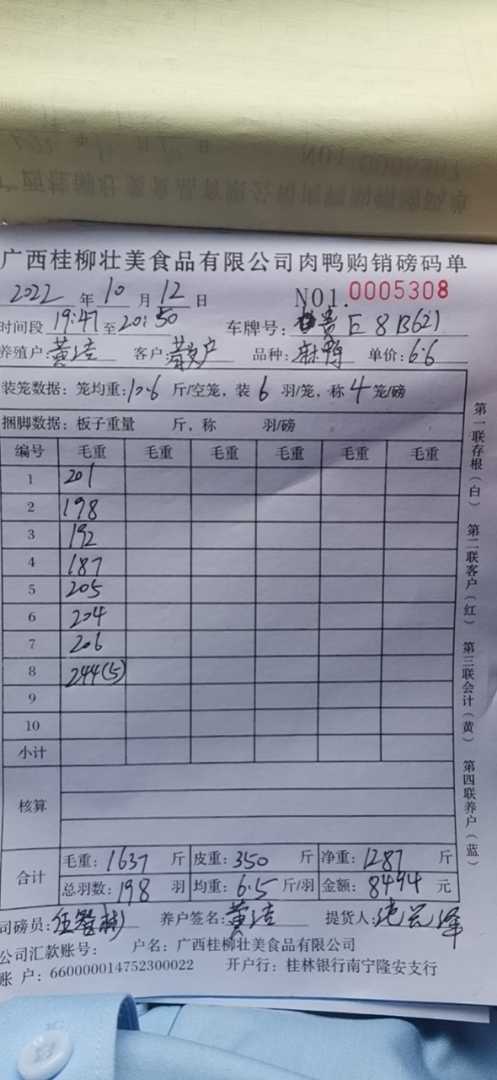 广西桂柳壮美食品有限公司肉鸭购销磅码单
2022 年 10 月 12 日 NO1.0005308
时间段 19:47 至 20:50 车牌号: E8B621
养殖户: 黄洁 客户: 散户 品种: 麻鸭 单价: 6.6
装笼数据: 笼均重: 10.6 斤/空笼, 装 6 羽/笼, 称 4 笼/磅
捆脚数据: 板子重量 斤, 称 羽/磅
编号 毛重 毛重 毛重 毛重 毛重 毛重
1 201
2 198
3 192
4 187
5 205
6 204
7 206
8 244(5)
9
10
小计
核算
合计 毛重: 1637 斤 皮重: 350 斤 净重: 1287 斤
总羽数: 198 羽 均重: 6.5 斤/羽 金额: 8494 元
司磅员: 养户签名: 黄洁 提货人:
公司汇款账号: 户名: 广西桂柳壮美食品有限公司
账 户: 660000014752300022 开户行: 桂林银行南宁隆安支行
第一联存根(白) 第二联客户(红) 第三联会计(黄) 第四联养户(蓝)